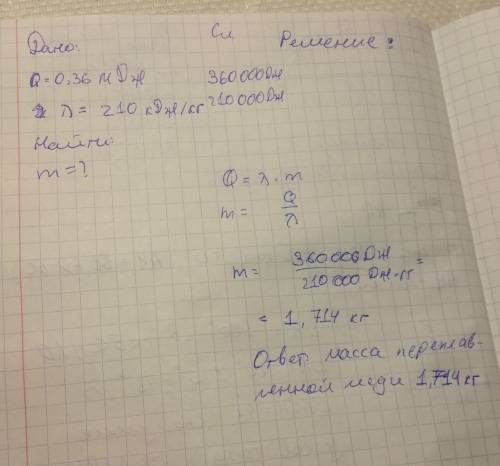 Дано:
Си
Решение:
Q = 0,36 МДж
360000Дж
λ = 210 кДж/кг
210000Дж
Найти:
m = ?
Q = λ · m
m = Q/λ
m = 360000Дж / 210000 Дж·кг =
= 1,714 кг
Ответ: масса переплав-
ленной меди 1,714 кг